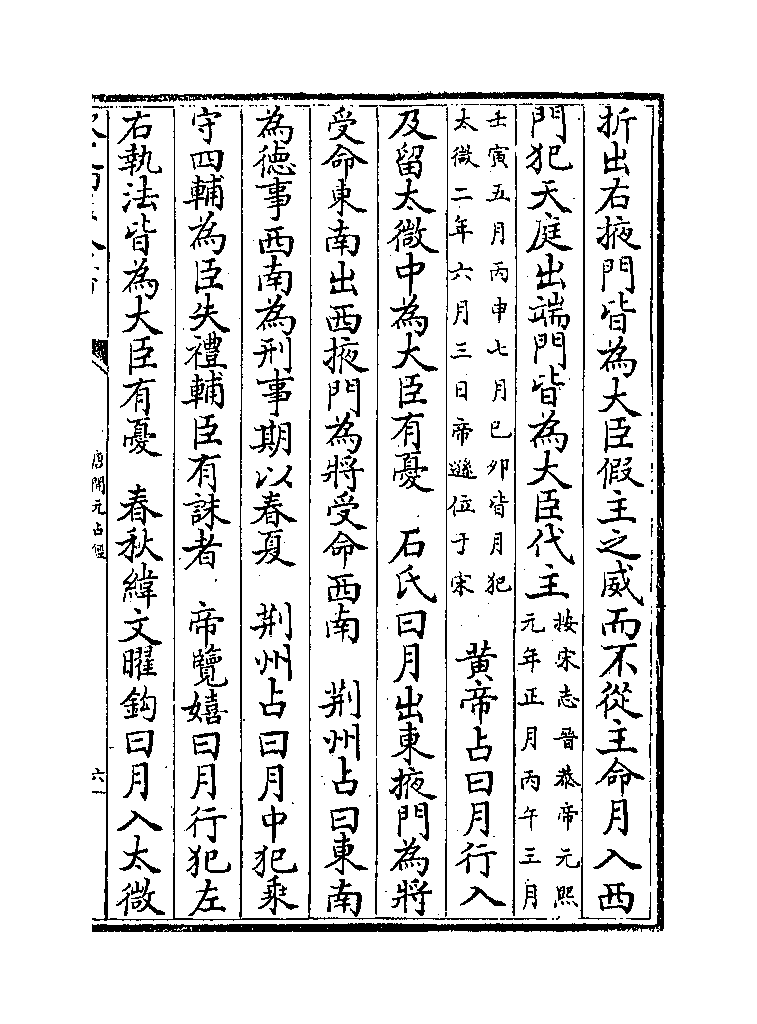 折出右掖門皆為大臣假主之威而不從主命月入西
門犯天庭出端門皆為大臣代主按宋志晉恭帝元熙
元年正月丙午三月
壬寅五月丙申七月己卯皆月犯
太微二年六月三日帝遜位于宋　黄帝占曰月行入
及留太微中為大臣有憂　石氏曰月出東掖門為將
受命東南出西掖門為將受命西南　荆州占曰東南
為徳事西南為刑事期以春夏　荆州占曰月中犯乘
守四輔為臣失禮輔臣有誅者　帝覽嬉曰月行犯左
右執法皆為大臣有憂　春秋緯文曜鈎曰月入太微
唐開元占經